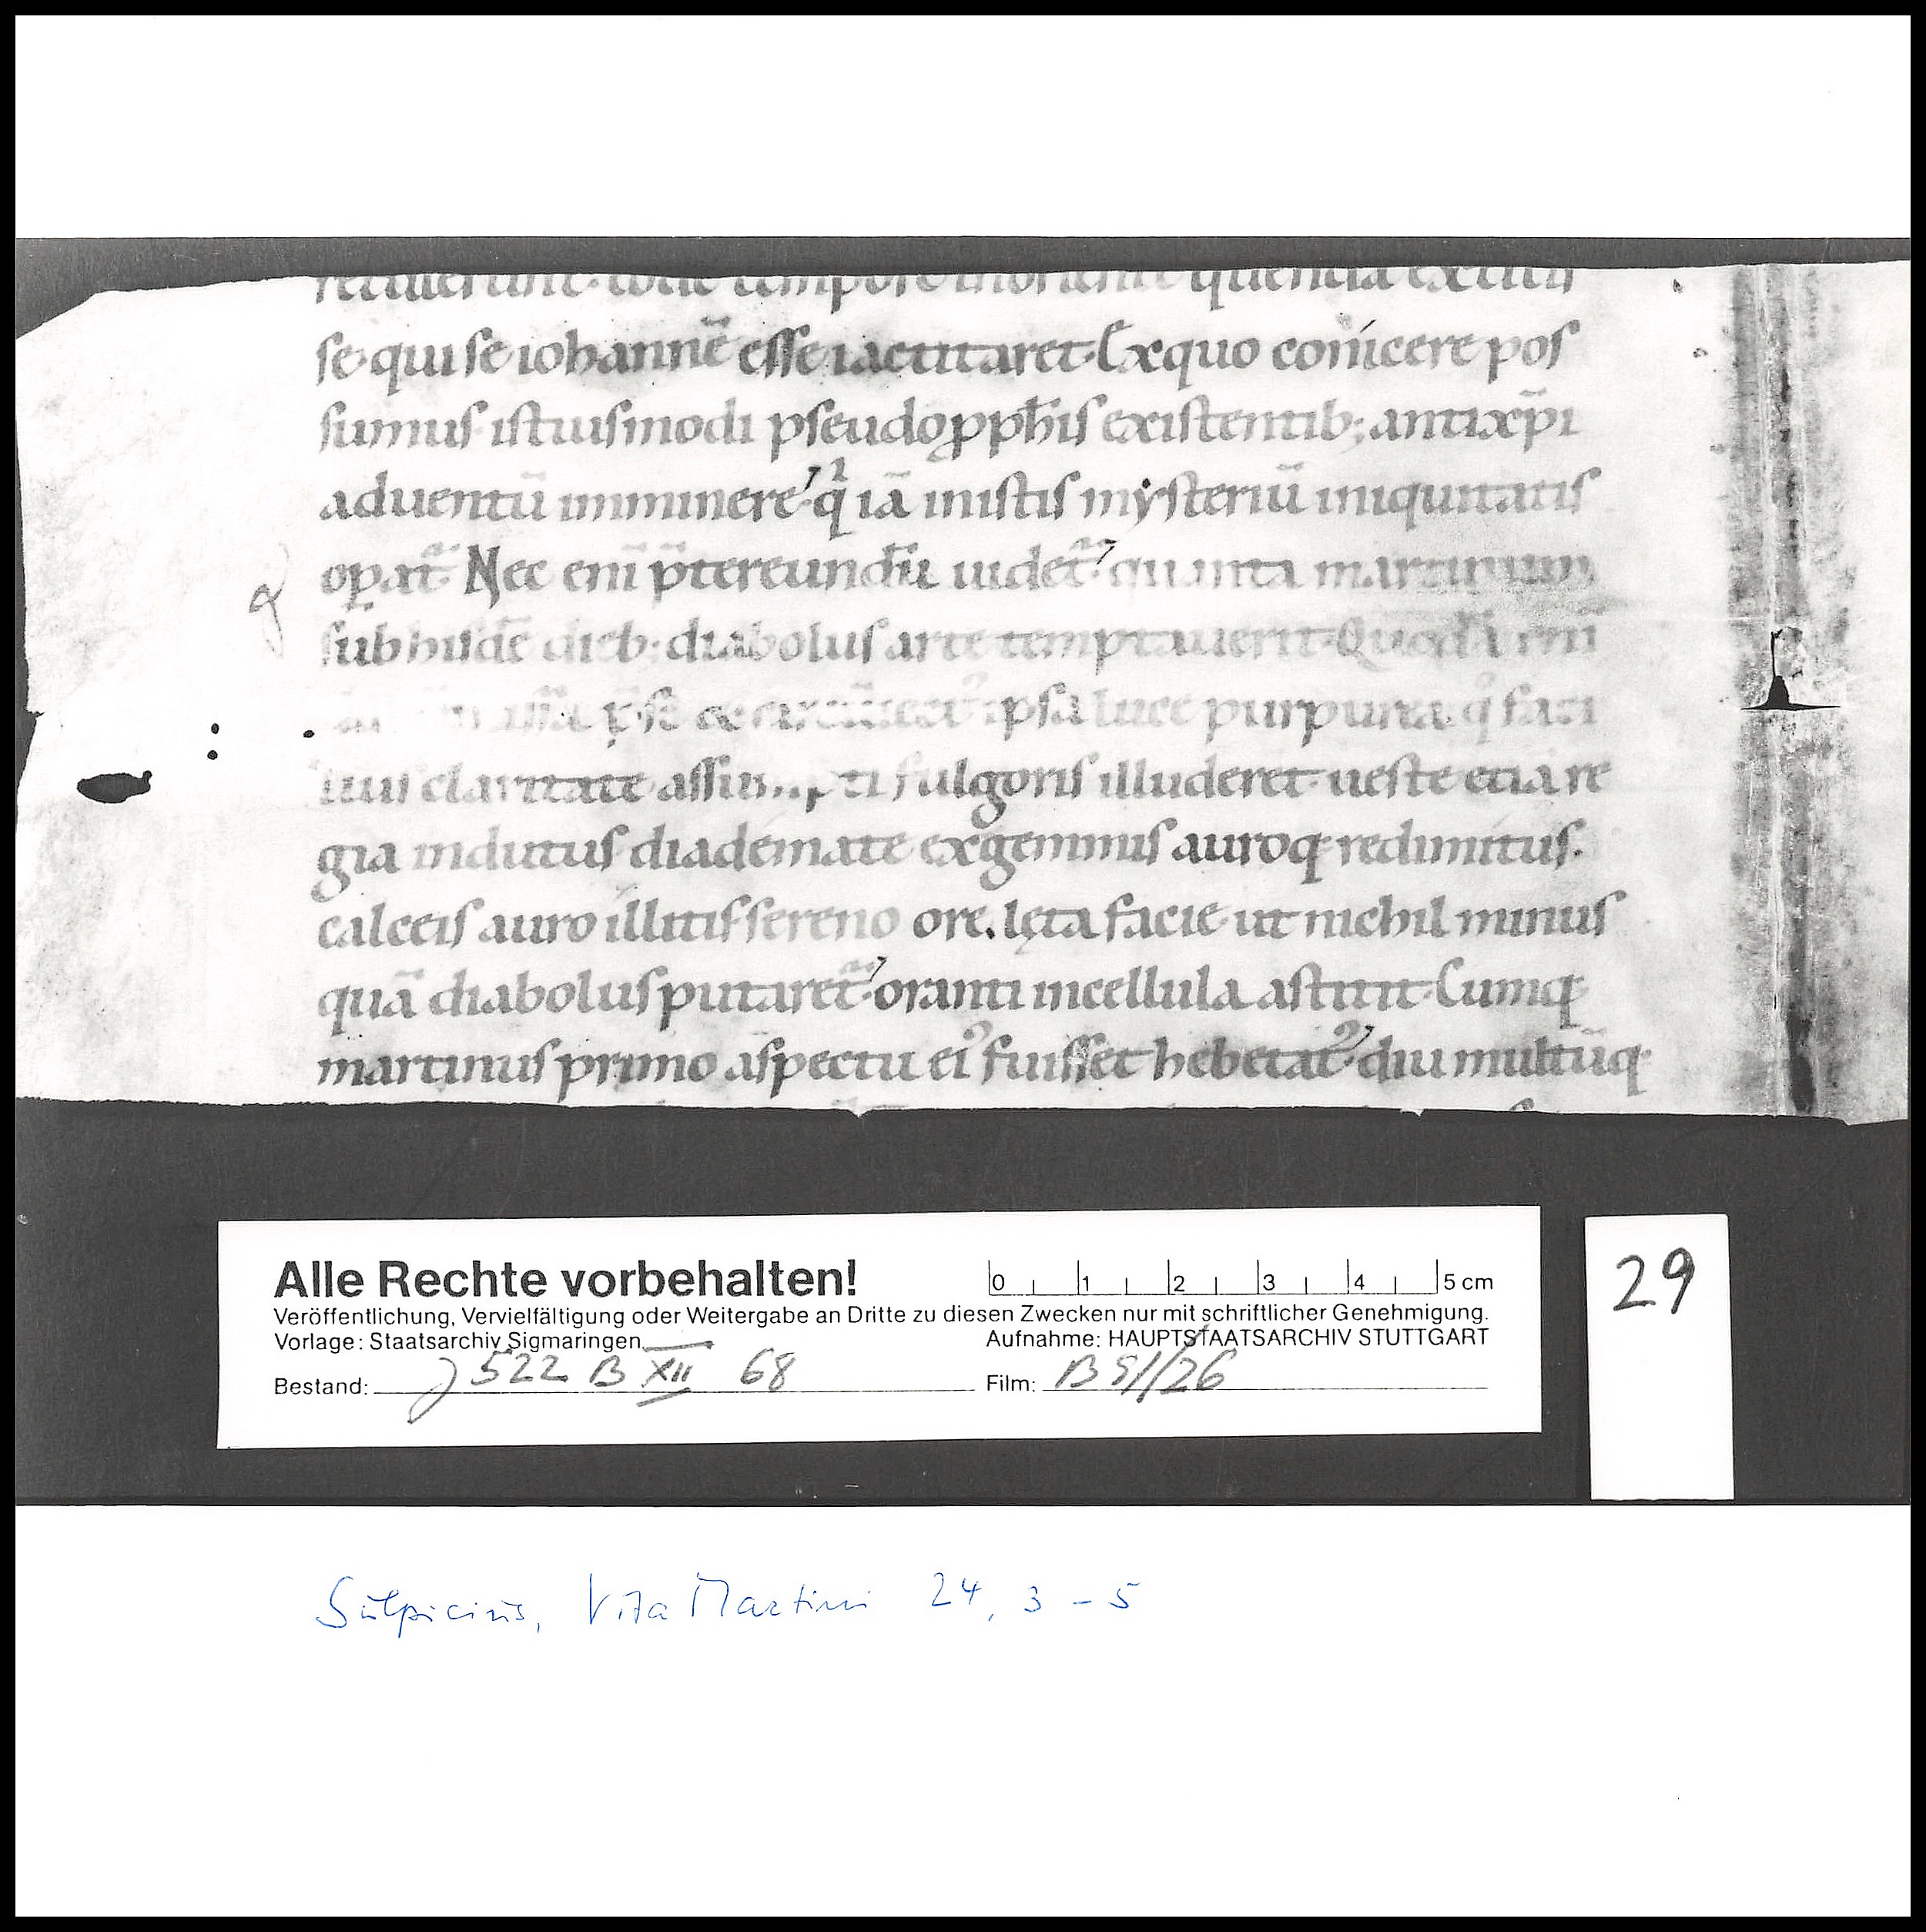 retulerunt. eodē tempore in oriente quendā extitis
se qui se iohannē esse iactitaret. Ex quo conicere pos
sumus istiusmodi pseudoꝓphis existentib; antixp̄i
aduentū imminere. q̄ iā inistis mysteriū iniquitatis
opat̄. Nec eni p̄tereundū uidet̄. quanta martinum
sub hisdē dieb. diabolus arte temptauerit. Quodā eni
p̄se & circūiect᾽ ipsa luce purpurea. q° faci
lius claritate assumpti fulgoris illuderet. ueste etiā re
gia indutus diademate ex gemmis auroq; redimitus.
calceis auro illitis sereno ore. lęta facie. ut nichil minus
quā diabolus putaret̄. oranti incellula astitit. Cumq;
martinus primo aspectu ei᾽ fuisset hebetat᾽. diu multūq;
Alle Rechte vorbehalten!
0 1 2 3 4 5 cm
Veröffentlichung, Vervielfältigung oder Weitergabe an Dritte zu diesen Zwecken nur mit schriftlicher Genehmigung.
Vorlage: Staatsarchiv Sigmaringen Aufnahme: HAUPTSTAATSARCHIV STUTTGART
Bestand: J 522 B XII 68 Film: B 51/26
29
Sulpicius, Vita Martini 24, 3 - 5